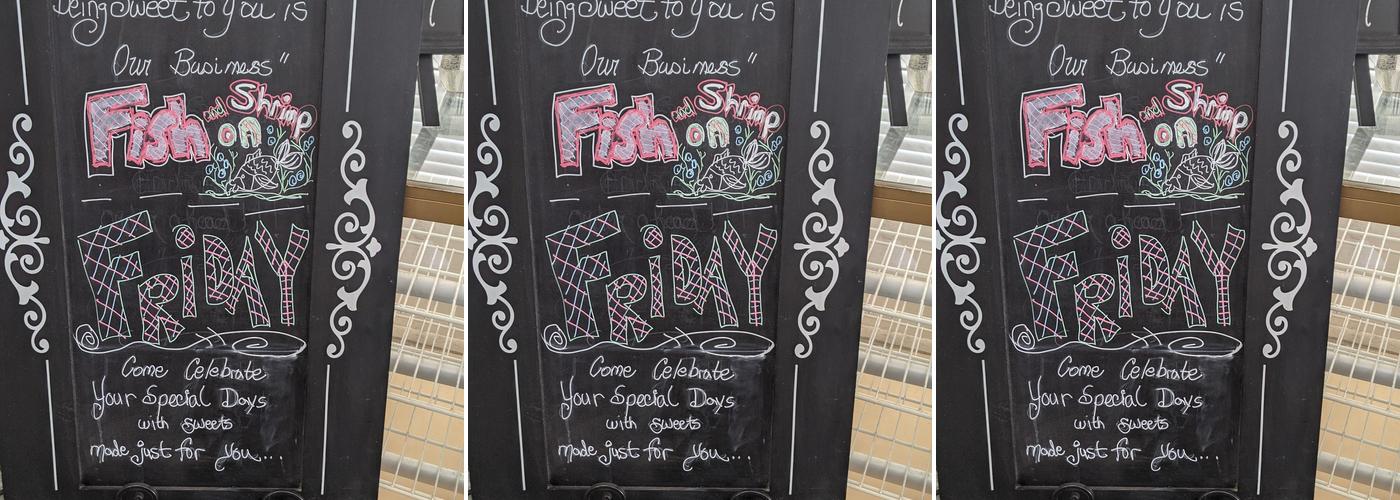 Being Sweet to You is
Our Business"
Fish and Shrimp
on
FRiDAY
Come Celebrate
Your Special Days
with sweets
made just for you...
Being Sweet to You is
Our Business"
Fish and Shrimp
on
FRiDAY
Come Celebrate
Your Special Days
with sweets
made just for you...
Being Sweet to You is
Our Business"
Fish and Shrimp
on
FRiDAY
Come Celebrate
Your Special Days
with sweets
made just for you...